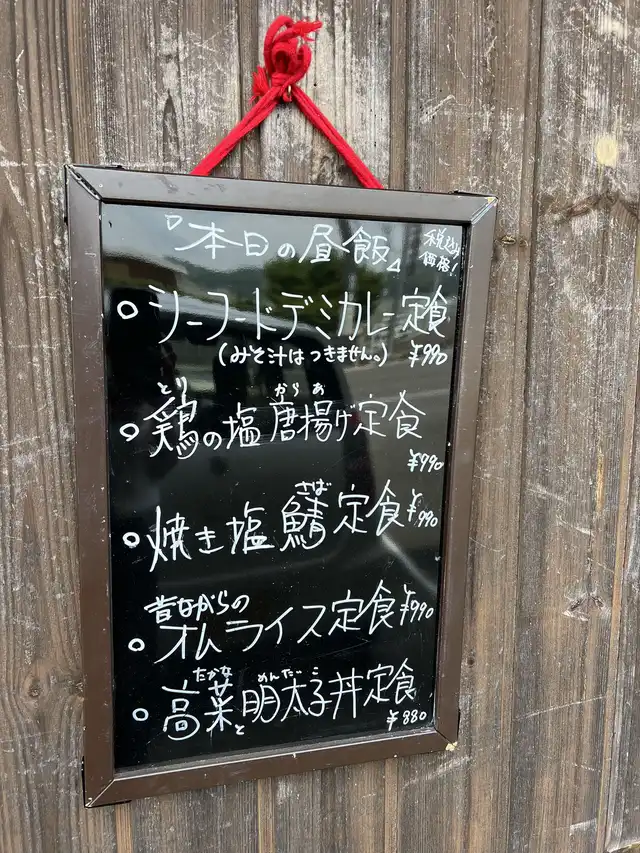 『本日の昼飯』
税込み
価格！
○シーフードデミカレー定食
(みそ汁はつきません。) ¥990
とり からあ
○鶏の塩唐揚げ定食
¥990
さば
○焼き塩鯖定食 ¥990
昔ながらの
○オムライス定食 ¥990
たかな めんたいこ
○高菜と明太子丼定食
¥880